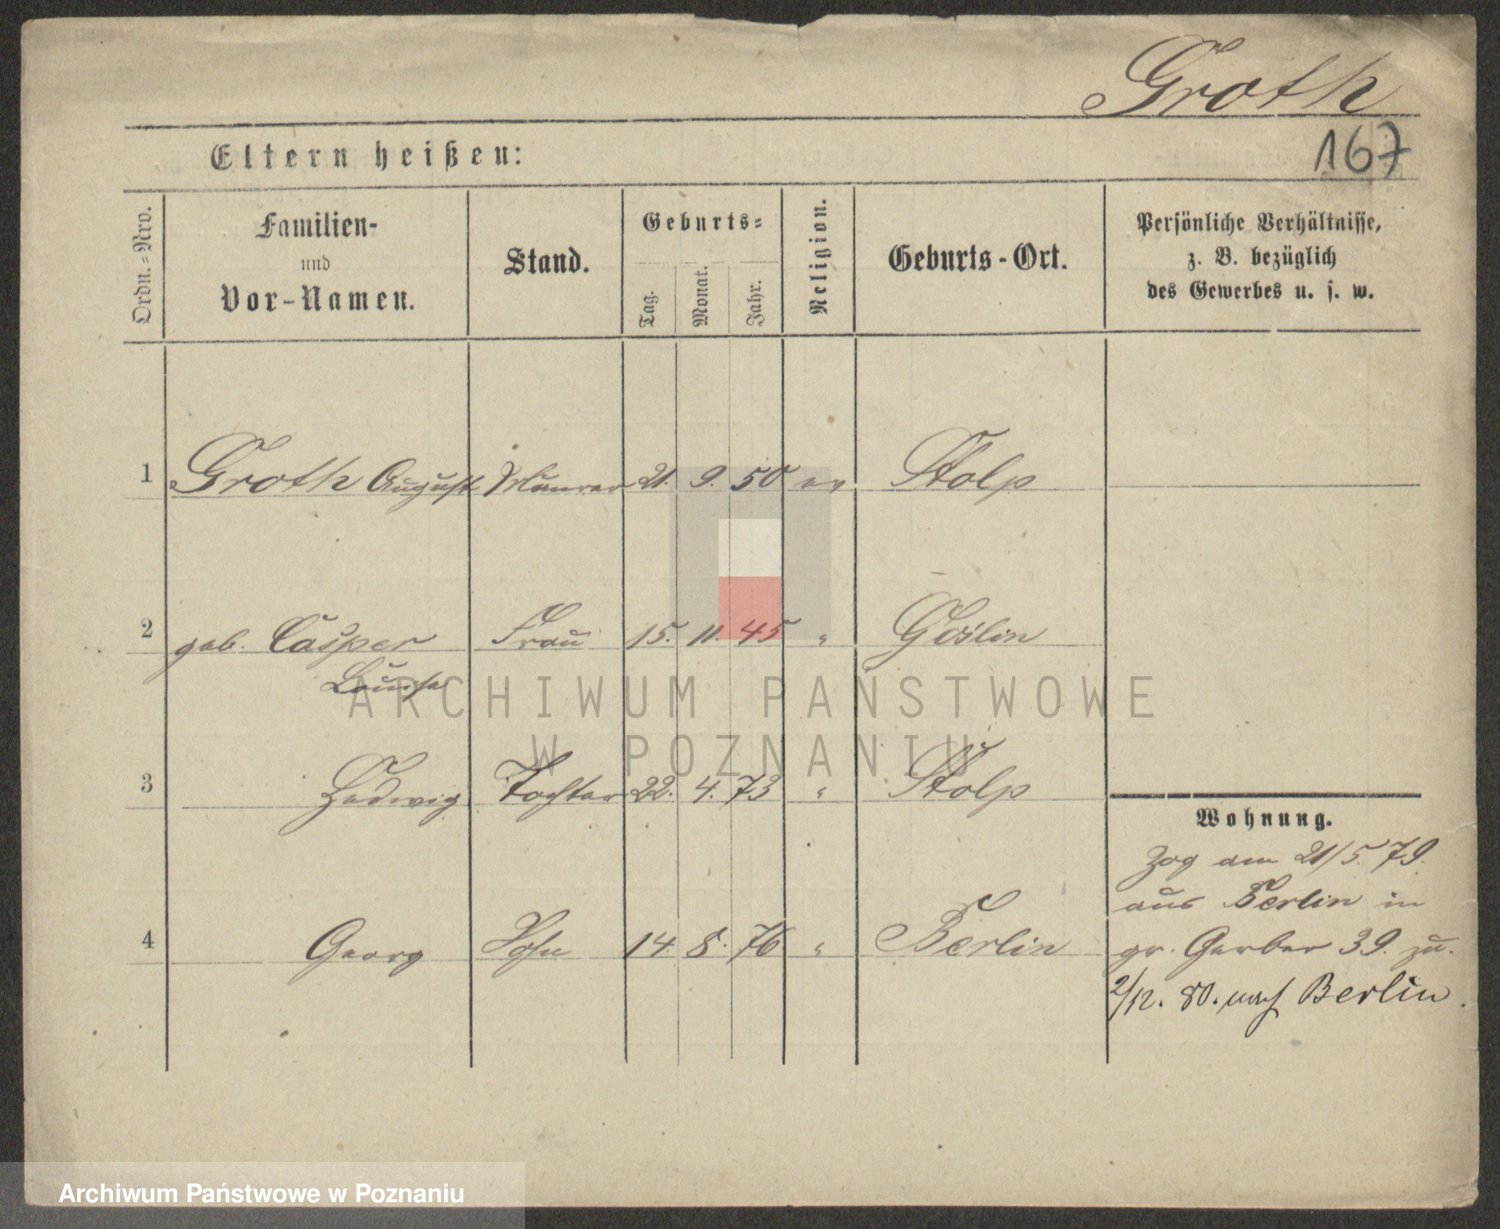 Groth
167
Eltern heißen:
Ordn.-Nro.
Familien-
und
Vor-Namen.
Stand.
Geburts-
Tag.
Monat.
Jahr.
Religion.
Geburts-Ort.
Persönliche Verhältnisse,
z. B. bezüglich
des Gewerbes u. s. w.
1 Groth August Maurer 21. 9. 50 ev Stolp
2 geb. Casper Frau 15. 11. 45 "
Louise
3 Hedwig Tochter 22. 4. 73 " Stolp
4 Georg Sohn 14. 8. 76 " Berlin
Wohnung.
Zog am 21/5. 79.
aus Berlin in
gr. Gerber 39. zu.
2/12. 80. nach Berlin.
ARCHIWUM PAŃSTWOWE
W POZNANIU
Archiwum Państwowe w Poznaniu